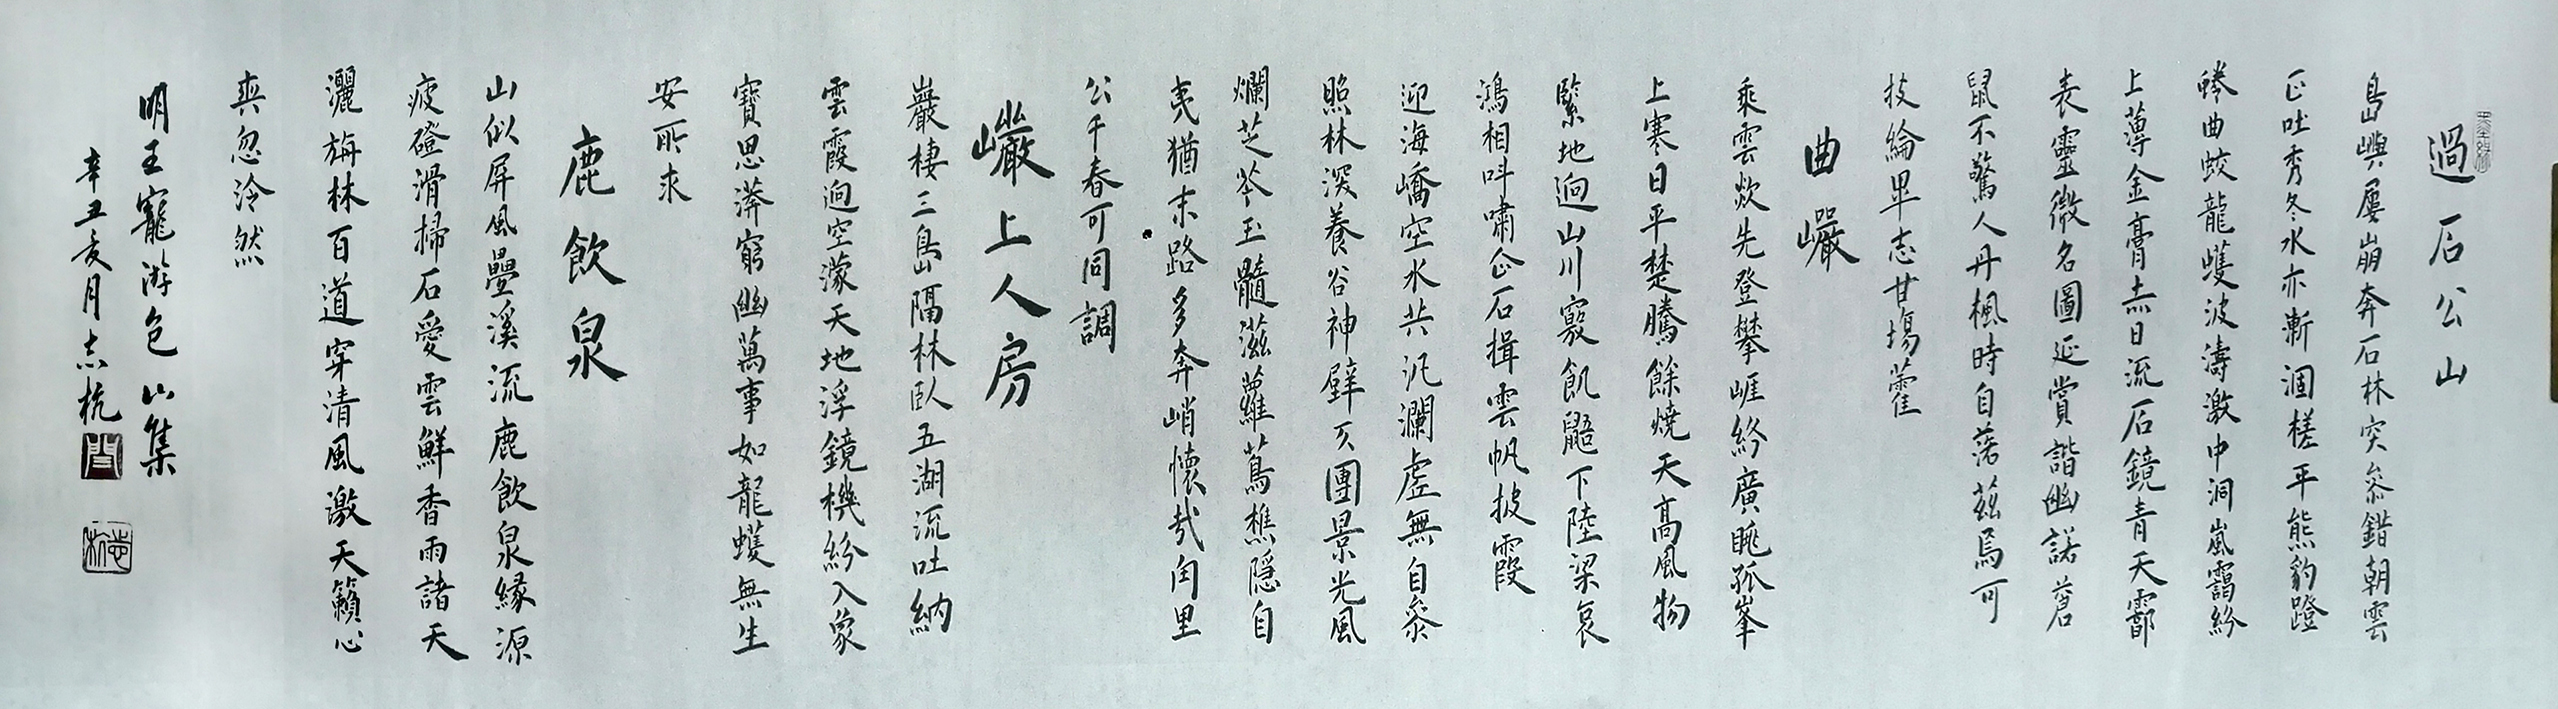 過石公山
島嶼屢崩奔石林突叅錯朝雲
正吐秀冬水亦漸涸槎平熊豹蹬
蜷曲蛟龍蠖波濤激中洞嵐靄紛
上薄金膏赤日流石鏡青天霩
表靈微名圖延賞諧幽諾蒼
鼠不驚人丹楓時自落茲焉可
投綸卑志甘場藿
曲巖
乘雲欻先登攀崕終廣眺孤峯
上寒日平楚騰餘燒天高風物
緊地迥山川竅飢鼯下陸梁哀
鴻相叫嘯企石揖雲帆披霞
迎海嶠空水共汎瀾虛無自叅
照林深養谷神壁仄團景光風
爛芝苓玉髓滋蘿蔦樵隱自
夷猶末路多奔峭懷哉甪里
公千春可同調
巖上人房
巖棲三島隔林臥五湖流吐納
雲霞迥空濛天地浮鏡機紛入象
寶思漭窮幽萬事如龍蠖無生
安所求
鹿飲泉
山似屏風疊溪流鹿飲泉緣源
疲磴滑掃石愛雲鮮香雨諸天
灑旃林百道穿清風激天籟心
爽忽泠然
明王寵游包山集
辛丑亥月志杭